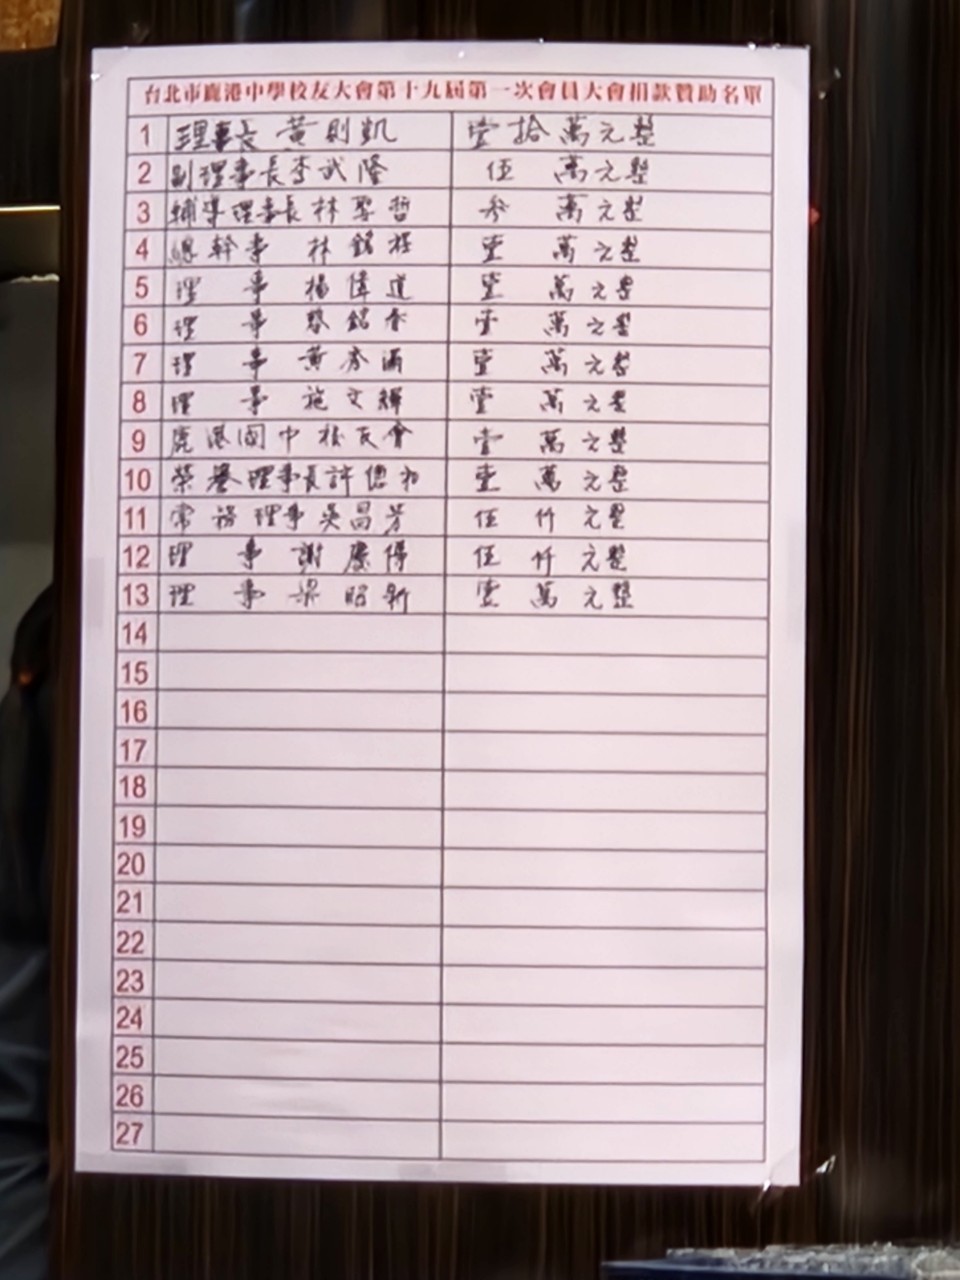 台北市鹿港中學校友大會第十九屆第一次會員大會捐款贊助名單
1 理事長 黃則凱 壹拾萬元整
2 副理事長李武隆 伍 萬元整
3 輔導理事長林聖哲 參 萬元整
4 總幹事 林銘 壹 萬元整
5 理 事 楊偉道 壹 萬元整
6 理 事 蔡銘 壹 萬元整
7 理 事 黃 壹 萬元整
8 理 事 施文輝 壹 萬元整
9 鹿港國中校友會 壹 萬元整
10 榮譽理事長許 壹 萬元整
11 常務理事吳昌芳 伍仟元整
12 理 事 謝慶得 伍仟元整
13 理 事 梁昭新 壹 萬元整
14
15
16
17
18
19
20
21
22
23
24
25
26
27